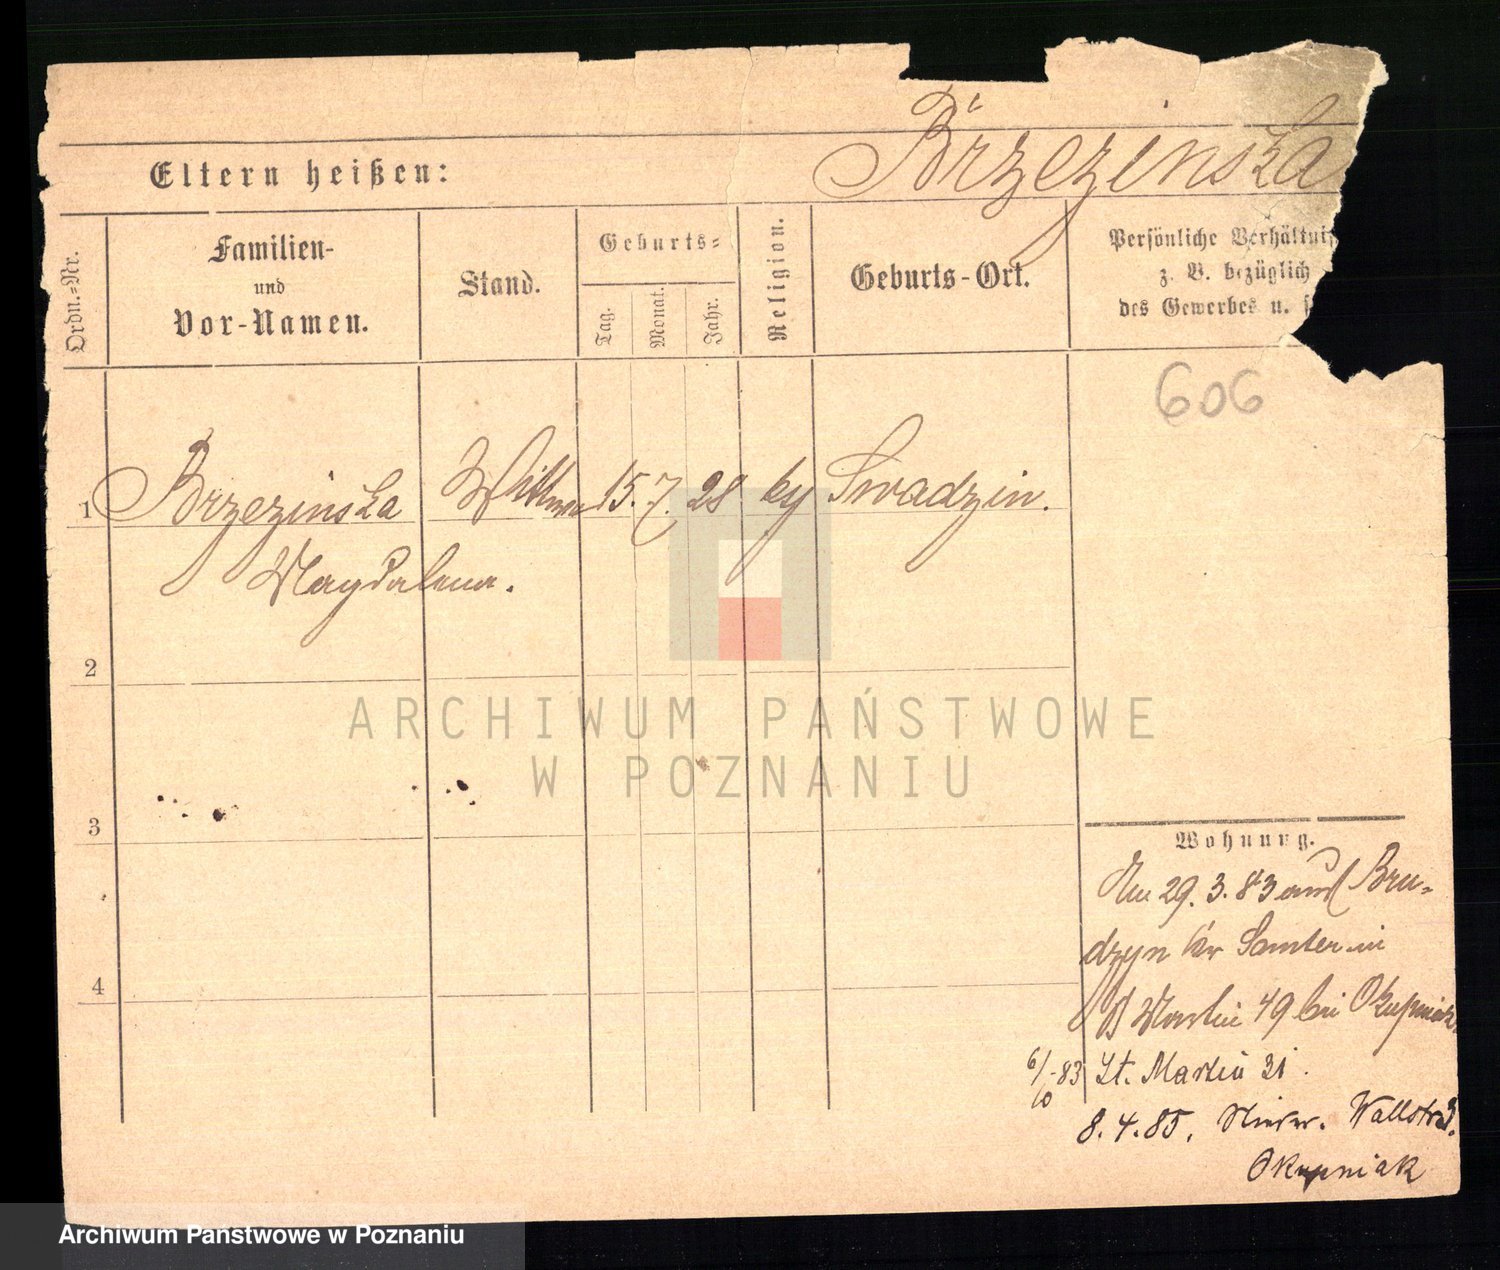 Brzezinska
Eltern heißen:
Ordn.-Nr.
Familien-
und
Vor-Namen.
Stand.
Geburts-
Tag.
Monat.
Jahr.
Religion.
Geburts-Ort.
Persönliche Verhältnis
z. B. bezüglich
des Gewerbes u. s
606
1 Brzezinska Wittwe 15. 7. 28 ky Swadzin.
Magdalena.
2
3
4
ARCHIWUM PAŃSTWOWE
W POZNANIU
Wohnung.
Am 29. 3. 83 aus Bru-
dzyn Kr Samter in
St Martin 49 bei Okupniak
6/10 -83 St. Martin 31.
8. 4. 85. Niederw. Wallstr 3.
Okupniak
Archiwum Państwowe w Poznaniu